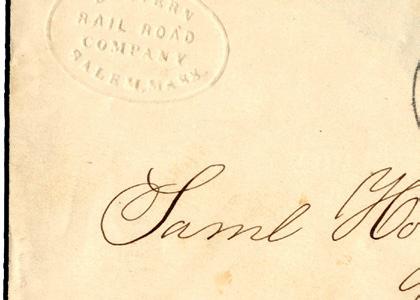 RAIL ROAD
COMPANY
SALEM, MASS.
Saml Ho